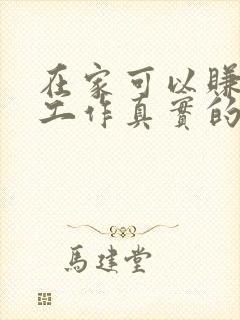 在家可以賺
工作真實的
馬建堂